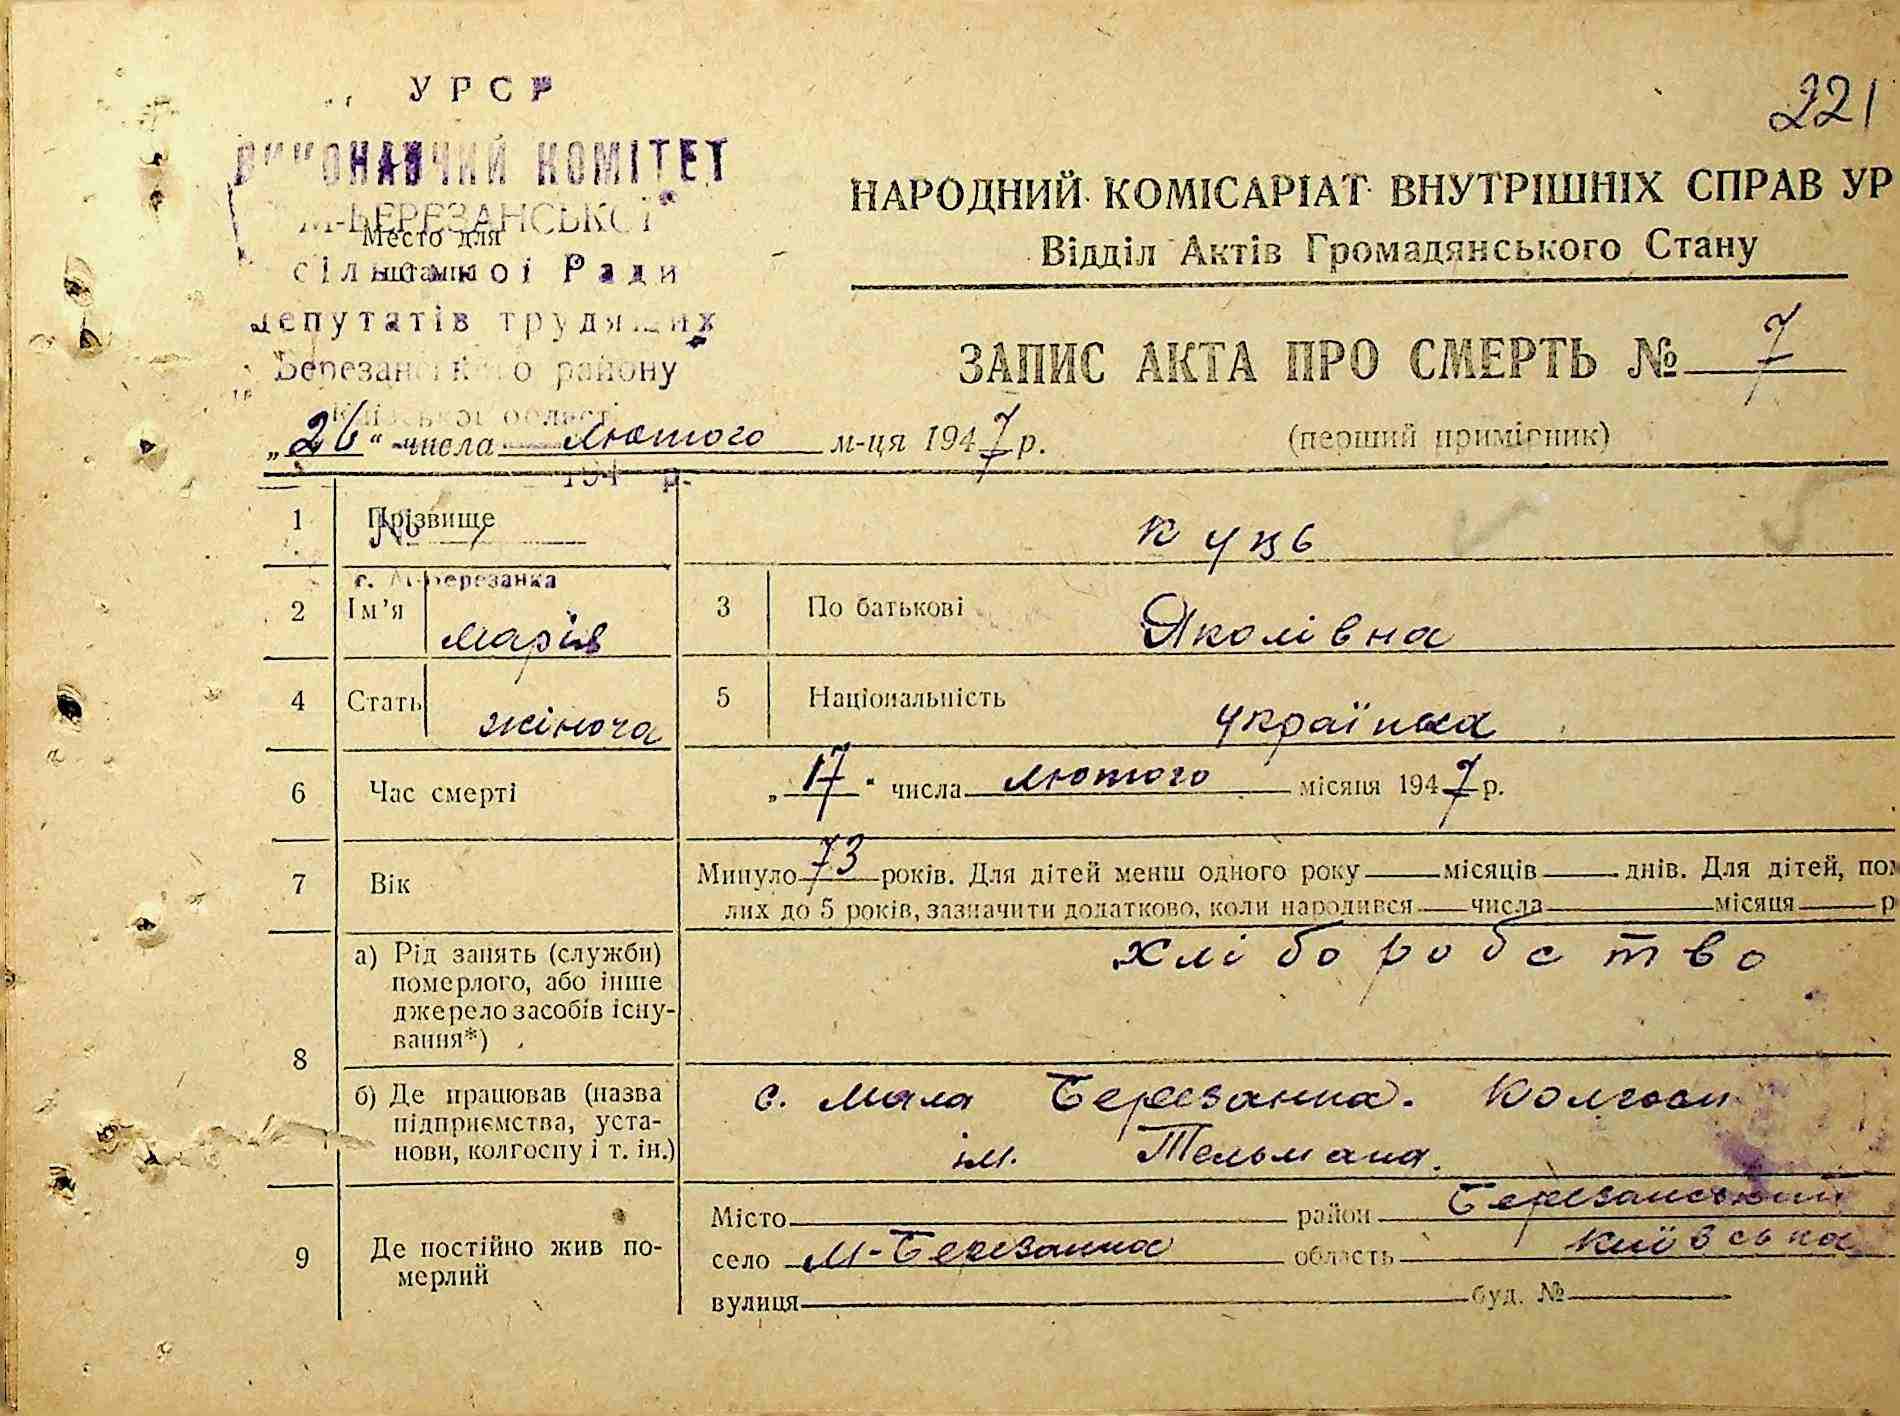 221
УРСР
ВИКОНАВЧИЙ КОМІТЕТ
М-БЕРЕЗАНСЬКОЇ
Место для
штампа
сільської Ради
депутатів трудящих
Березанського району
Київської області
194 р.
№ 7
с. М-Березанка
НАРОДНИЙ КОМІСАРІАТ ВНУТРІШНІХ СПРАВ УР
Відділ Актів Громадянського Стану
ЗАПИС АКТА ПРО СМЕРТЬ № 7
„26“ числа лютого м-ця 1947 р.
(перший примірник)
1 Прізвище Куць
2 Ім'я Марія 3 По батькові Якомівна
4 Стать жіноча 5 Національність українка
6 Час смерті „17“ числа лютого місяця 1947 р.
7 Вік Минуло 73 років. Для дітей менш одного року місяців днів. Для дітей, пом
лих до 5 років, зазначити додатково, коли народився числа місяця р
8 а) Рід занять (служби) хліборобство
померлого, або інше
джерело засобів існу-
вання*)
б) Де працював (назва с. Мала Березанка. Колгосп
підприємства, уста- ім. Тельмана.
нови, колгоспу і т. ін.)
9 Де постійно жив по-
мерлий
Місто район Березанський
село М-Березанка область Київська
вулиця буд. №